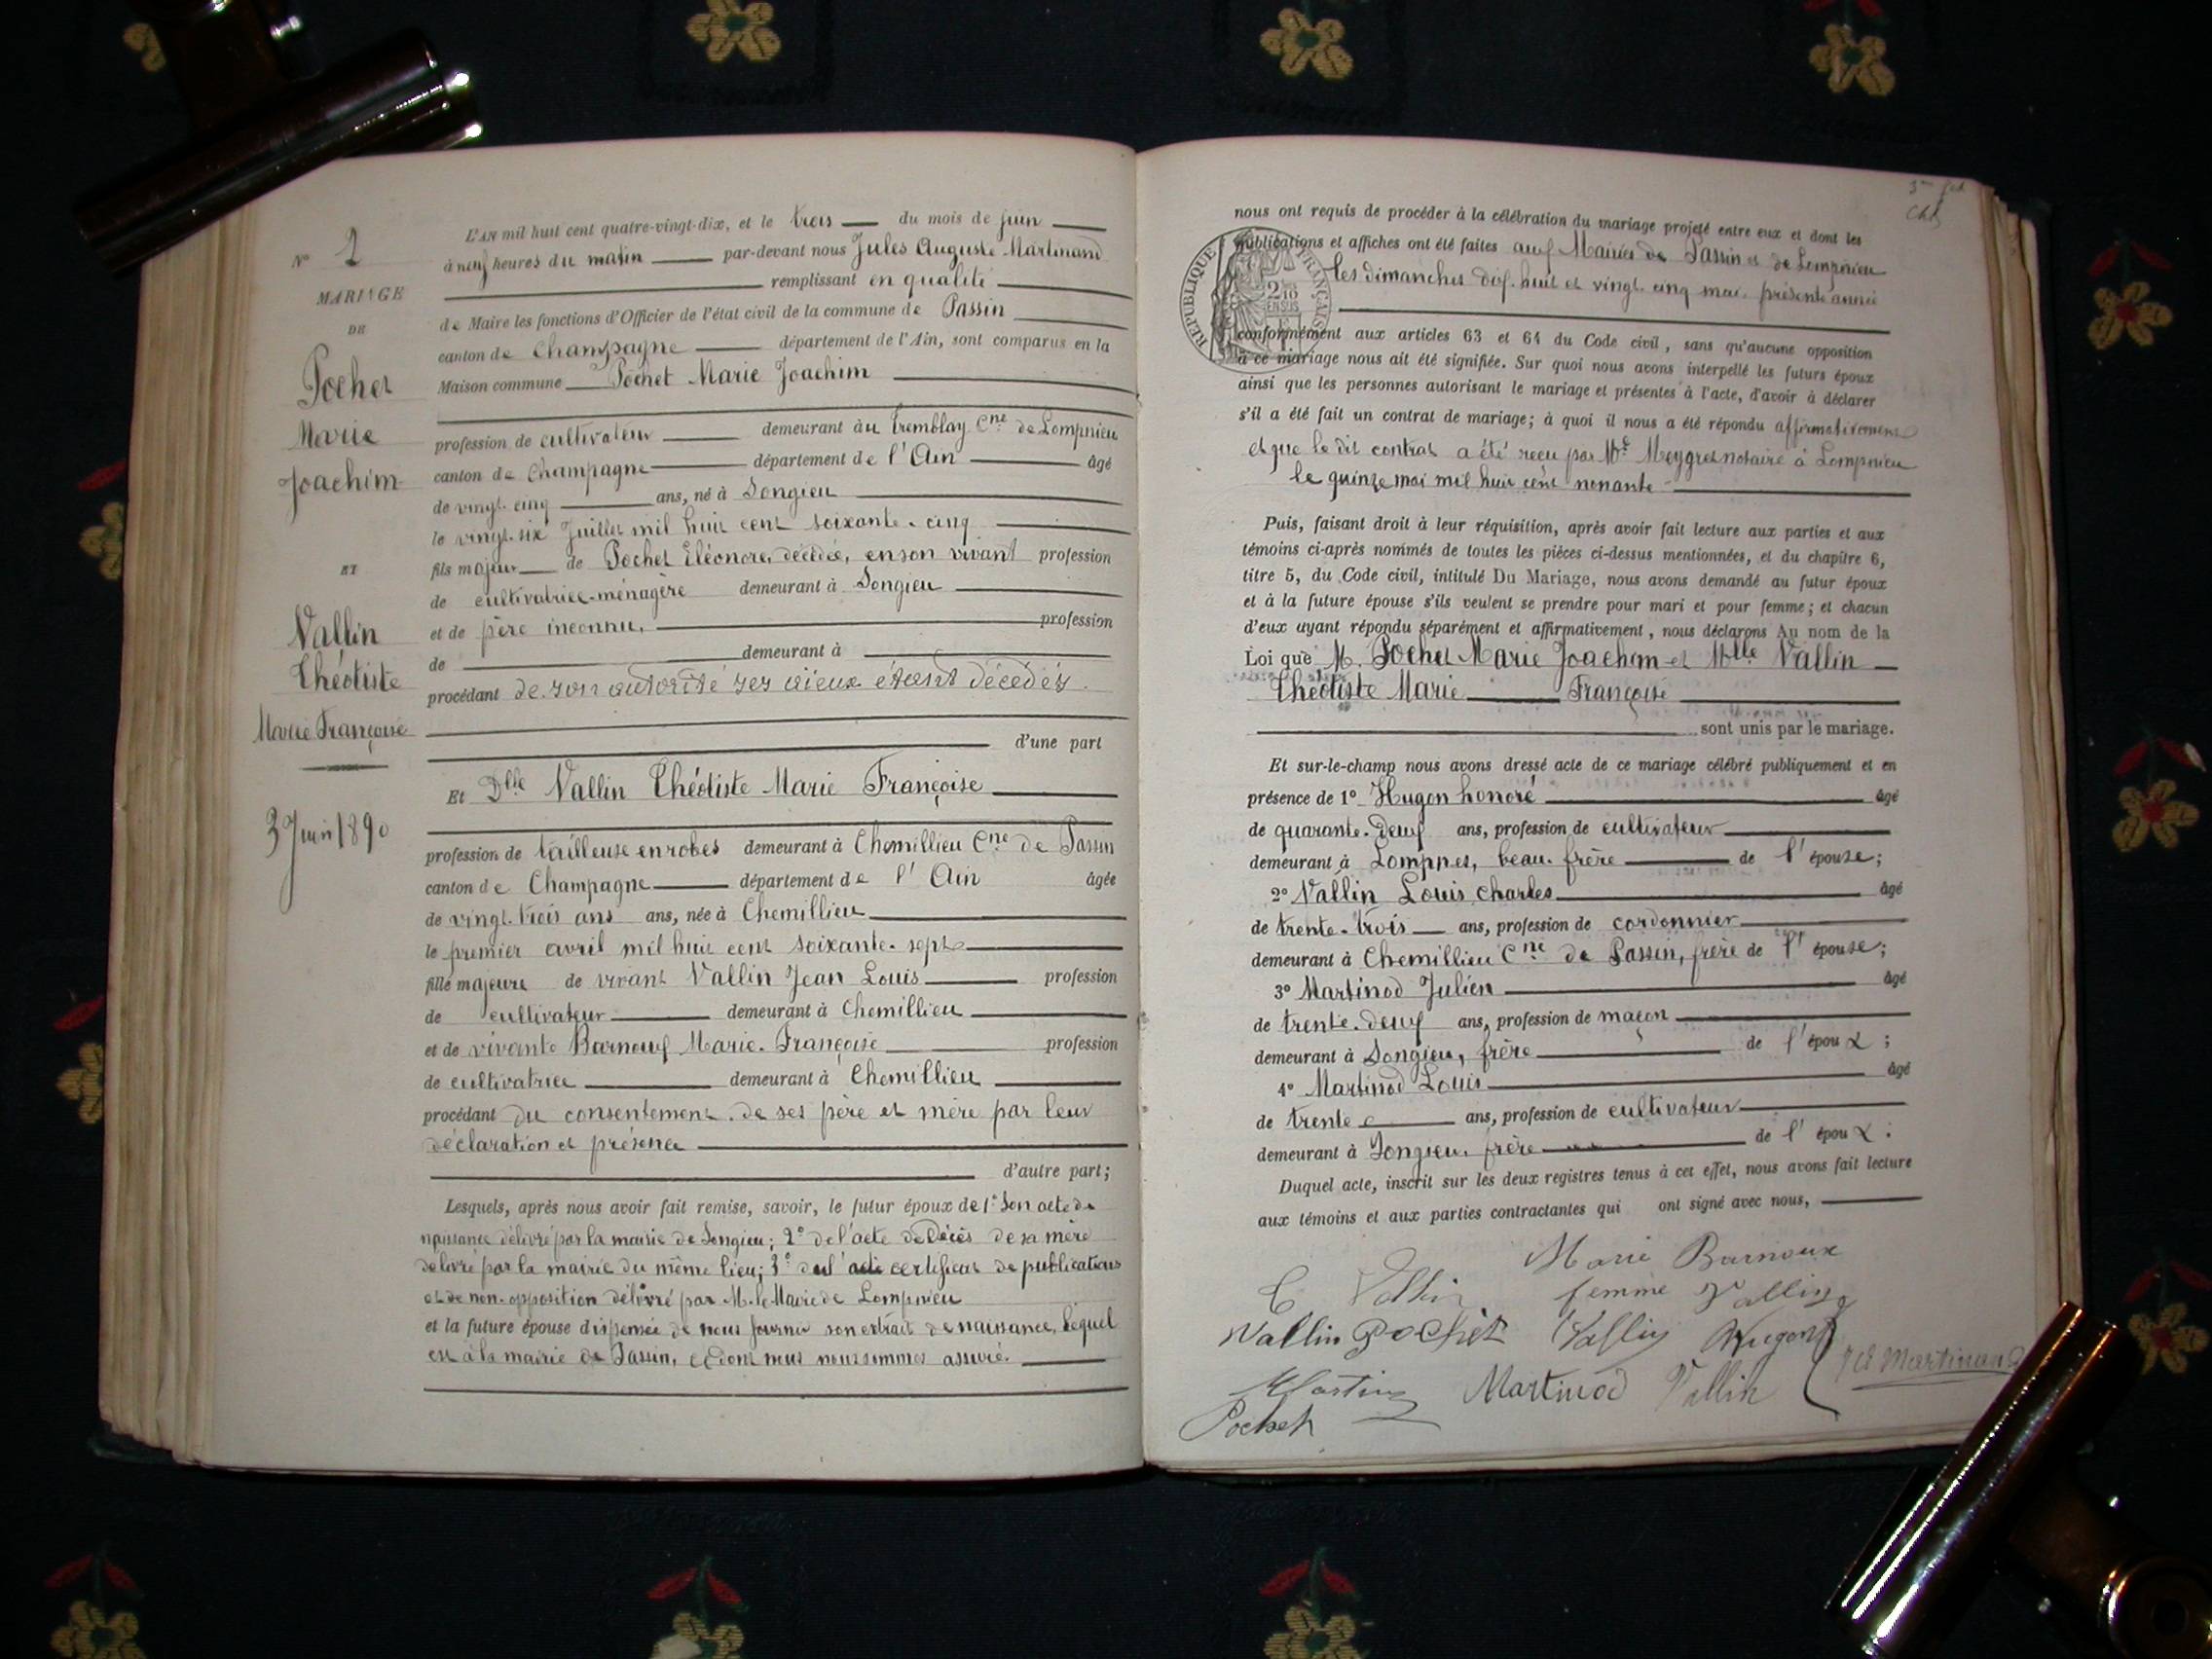 N° 2
MARIAGE
DE
Pochet
Marie
Joachim
ET
Vallin
Théotiste
Marie Françoise
3 Juin 1890
L'AN mil huit cent quatre-vingt-dix, et le trois du mois de juin
à neuf heures du matin par-devant nous Jules Auguste Martinand
remplissant en qualité
de Maire les fonctions d'Officier de l'état civil de la commune de Passin
canton de Champagne département de l'Ain, sont comparus en la
Maison commune Pochet Marie Joachim
profession de cultivateur demeurant au Tremblay Cne de Lompnieu
canton de Champagne département de l'Ain âgé
de vingt-cinq ans, né à Songieu
le vingt-six Juillet mil huit cent soixante-cinq
fils majeur de Pochet Eléonore, décédée, en son vivant profession
de cultivatrice-ménagère demeurant à Songieu
et de père inconnu, profession
de demeurant à
procédant de son autorité ses aïeux étant décédés
d'une part
Et Dlle Vallin Théotiste Marie Françoise
profession de tailleuse en robes demeurant à Chemillieu Cne de Passin
canton de Champagne département de l'Ain âgée
de vingt-trois ans ans, née à Chemillieu
le premier avril mil huit cent soixante-sept
fille majeure de vivant Vallin Jean Louis profession
de cultivateur demeurant à Chemillieu
et de vivante Barnoux Marie-Françoise profession
de cultivatrice demeurant à Chemillieu
procédant du consentement de ses père et mère par leur
déclaration et présence
d'autre part;
Lesquels, après nous avoir fait remise, savoir, le futur époux de 1° Son acte de
naissance délivré par la mairie de Songieu; 2° de l'acte de Décès de sa mère
délivré par la mairie du même lieu; 3° certificat de publications
et de non-opposition délivré par M. le Maire de Lompnieu
et la future épouse dispensée de nous fournir son extrait de naissance, lequel
est à la mairie de Passin, et dont nous nous sommes assuré.
nous ont requis de procéder à la célébration du mariage projeté entre eux et dont les
publications et affiches ont été faites aux Mairies de Passin et de Lompnieu
les dimanches dix-huit et vingt-cinq mai, présente année
RÉPUBLIQUE FRANÇAISE
conformément aux articles 63 et 64 du Code civil, sans qu'aucune opposition
à ce mariage nous ait été signifiée. Sur quoi nous avons interpellé les futurs époux
ainsi que les personnes autorisant le mariage et présentes à l'acte, d'avoir à déclarer
s'il a été fait un contrat de mariage; à quoi il nous a été répondu affirmativement
et que le dit contrat a été reçu par Me Meygret notaire à Lompnieu
le quinze mai mil huit cent nonante
Puis, faisant droit à leur réquisition, après avoir fait lecture aux parties et aux
témoins ci-après nommés de toutes les pièces ci-dessus mentionnées, et du chapitre 6,
titre 5, du Code civil, intitulé Du Mariage, nous avons demandé au futur époux
et à la future épouse s'ils veulent se prendre pour mari et pour femme; et chacun
d'eux ayant répondu séparément et affirmativement, nous déclarons Au nom de la
Loi que M. Pochet Marie Joachim et Mlle Vallin
Théotiste Marie Françoise
sont unis par le mariage.
Et sur-le-champ nous avons dressé acte de ce mariage célébré publiquement et en
présence de 1° Hugon honoré âgé
de quarante-deux ans, profession de cultivateur
demeurant à Lompnes, beau-frère de l'épouse;
2° Vallin Louis Charles âgé
de trente-trois ans, profession de cordonnier
demeurant à Chemillieu Cne de Passin, frère de l'épouse;
3° Martinod Julien âgé
de trente-deux ans, profession de maçon
demeurant à Songieu, frère de l'époux;
4° Martinod Louis âgé
de trente ans, profession de cultivateur
demeurant à Songieu frère de l'époux:
Duquel acte, inscrit sur les deux registres tenus à cet effet, nous avons fait lecture
aux témoins et aux parties contractantes qui ont signé avec nous,
Marie Barnoux
Vallin femme Vallin
Vallin Pochet Vallin Hugon
Martinod Vallin Martinand
Pochet